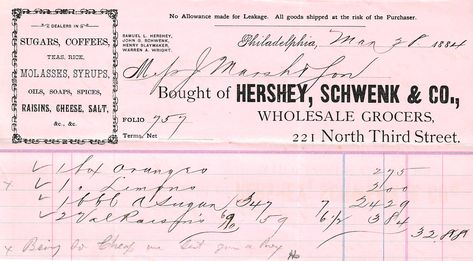 No Allowance made for Leakage. All goods shipped at the risk of the Purchaser.
DEALERS IN
SUGARS, COFFEES,
TEAS, RICE,
MOLASSES, SYRUPS,
OILS, SOAPS, SPICES,
RAISINS, CHEESE, SALT,
&c., &c.
SAMUEL L. HERSHEY,
JOHN G. SCHWENK,
HENRY SLAYMAKER,
WARREN A. WRIGHT.
Philadelphia, Mar 28 1884
Mess J Marsh & Son
Bought of HERSHEY, SCHWENK & CO.,
WHOLESALE GROCERS,
221 North Third Street.
FOLIO 757
Terms, Net
1 box Oranges 275
1 " Limons 300
1 bbl A Sugar 347 7 2429
2 Val Raisins 59 6 1/2 384
3288
x Being So Cheap we sent you a box